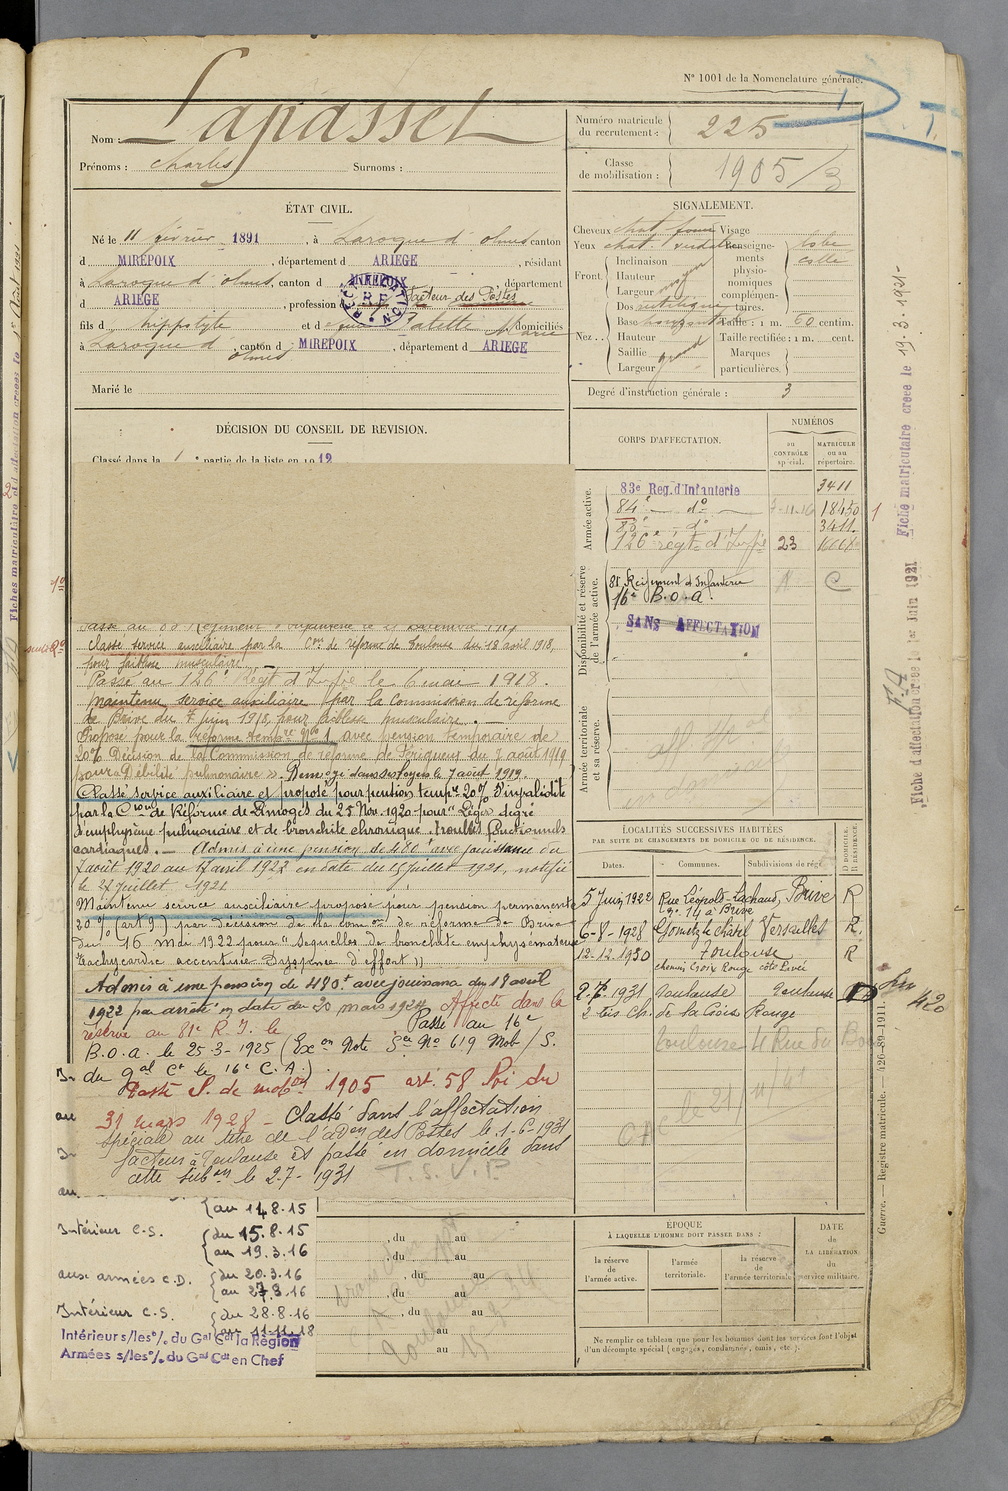 N° 1001 de la Nomenclature générale.
Nom : Lapasset
Prénoms : Charles Surnoms :
Numéro matricule du recrutement : 225
Classe de mobilisation : 1905/3
ÉTAT CIVIL.
Né le 11 février 1891, à Laroque d'olmes canton
d MIREPOIX, département d ARIEGE, résidant
à Laroque d'olmes, canton d MIREPOIX, département
d ARIEGE, profession d facteur des Postes
fils d hippolyte et d Marie domiciliés
à Laroque d'olmes, canton d MIREPOIX, département d ARIEGE
Marié le
SIGNALEMENT.
Cheveux chat. foncé Visage
Yeux chat. Renseigne-
Front. Inclinaison ments
Hauteur moyen physio-
Largeur nomiques
Nez.. Dos rectiligne complémen-
taires.
Base horizontale Taille : 1 m. 60 centim.
Hauteur Taille rectifiée : 1 m. cent.
Saillie grand Marques
Largeur particulières.
Degré d'instruction générale : 3
DÉCISION DU CONSEIL DE REVISION.
Classé dans la 1e partie de la liste en 1912
CORPS D'AFFECTATION.
NUMÉROS
au CONTRÔLE spécial.
MATRICULE ou au répertoire.
Armée active.
83e Reg. d'Infanterie 3411
84e do 18450
83e do 3411
126e régt d'Inf 23
Disponibilité et réserve de l'armée active.
81 Régiment d'Infanterie
16e B.O.A.
SANS AFFECTATION
Armée territoriale et sa réserve.
Passé au 83 Régiment d'infanterie le 21
classé service auxiliaire par la Con de réforme de Toulouse du 18 avril 1918,
pour faiblesse musculaire.
Passé au 126e Régt d'Infie le 6 mai 1918.
Maintenu service auxiliaire par la Commission de réforme
de Brive du 7 juin 1918, pour faiblesse musculaire.
Proposé pour la réforme tempre N° 1 avec pension temporaire de
20% Décision de la Commission de réforme de Périgueux du 7 août 1919
pour « Débilité pulmonaire ». Dans ses foyers le 7 août 1919.
Classé service auxiliaire et proposé pour pension tempre 20% d'invalidité
par la Con de Réforme de Limoges du 25 Nov. 1920 pour "Léger degré
d'emphysème pulmonaire et de bronchite chronique. Troubles fonctionnels
cardiaques. — Admis à une pension de 480f avec jouissance du
7 août 1920 au 17 avril 1922 en date du 15 juillet 1921, notifié
le 27 juillet 1921
Maintenu service auxiliaire proposé pour pension permanente
20% (art 9) par décision de la Comon de réforme de Brive
du 16 Mai 1922 pour "Séquelles de bronchite emphysémateuse
Tachycardie accentuée Dyspnée d'effort"
Admis à une pension de 480f avec jouissance du 18 avril
1922 par arrêté en date du 20 mars 1924 Affecté dans la
réserve au 81e R.I. le Passé au 16e
B.O.A. le 25-3-1925 (Exon Note Sce N° 619 Mob/S.
du gal Ct le 16e C.A.)
Passé Cl. de mobon 1905 art. 58 loi du
31 mars 1928 - Classé dans l'affectation
spéciale au titre de l'Adon des Postes le 1-6-1931
facteur à Toulouse et passé en domicile dans
cette subon le 2-7-1931
T.S.V.P.
au 14.8.15
Intérieur C.S. du 15.8.15
au 19.3.16
aux armées C.D. du 20.3.16
au 27.8.16
Intérieur C.S. du 28.8.16
au 11.11.18
Intérieur s/les o/. du Gal Cdt la Région
Armées s/les o/. du Gal Cdt en Chef
, du au
, du au
, du au
, du au
, du au
au
au
LOCALITÉS SUCCESSIVES HABITÉES
PAR SUITE DE CHANGEMENTS DE DOMICILE OU DE RÉSIDENCE.
Dates. Communes. Subdivisions de régi D. DOMICILE, R. RÉSIDENCE.
5 Juin 1922 Rue Léopold-Lachaud, Brive R
n° 14 à Brive
6-8-1928 Gometz le Chatel Versailles R.
12-12-1930 Toulouse R
chemin Croix Rouge côté Lavée
2-7-1931 Toulouse Toulouse D
2 bis Ch. de la Croix Rouge
Toulouse 4 Rue du
ÉPOQUE
À LAQUELLE L'HOMME DOIT PASSER DANS :
la réserve de l'armée active.
l'armée territoriale.
la réserve de l'armée territoriale.
DATE de LA LIBÉRATION du service militaire.
Ne remplir ce tableau que pour les hommes dont les services font l'objet
d'un décompte spécial (engagés, condamnés, omis, etc.).
Guerre. — Registre matricule. — 426-89-1911.
Fiche matriculaire créée le 19-3-1921-
Fiche d'affectation créée le 1er Juin 1921
420